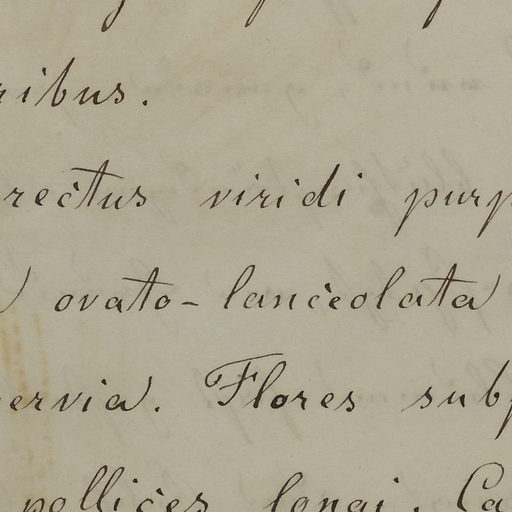 ribus.
rectus viridi purp
ovato-lanceolata
ervia. Flores subp
pollices longi. Ca